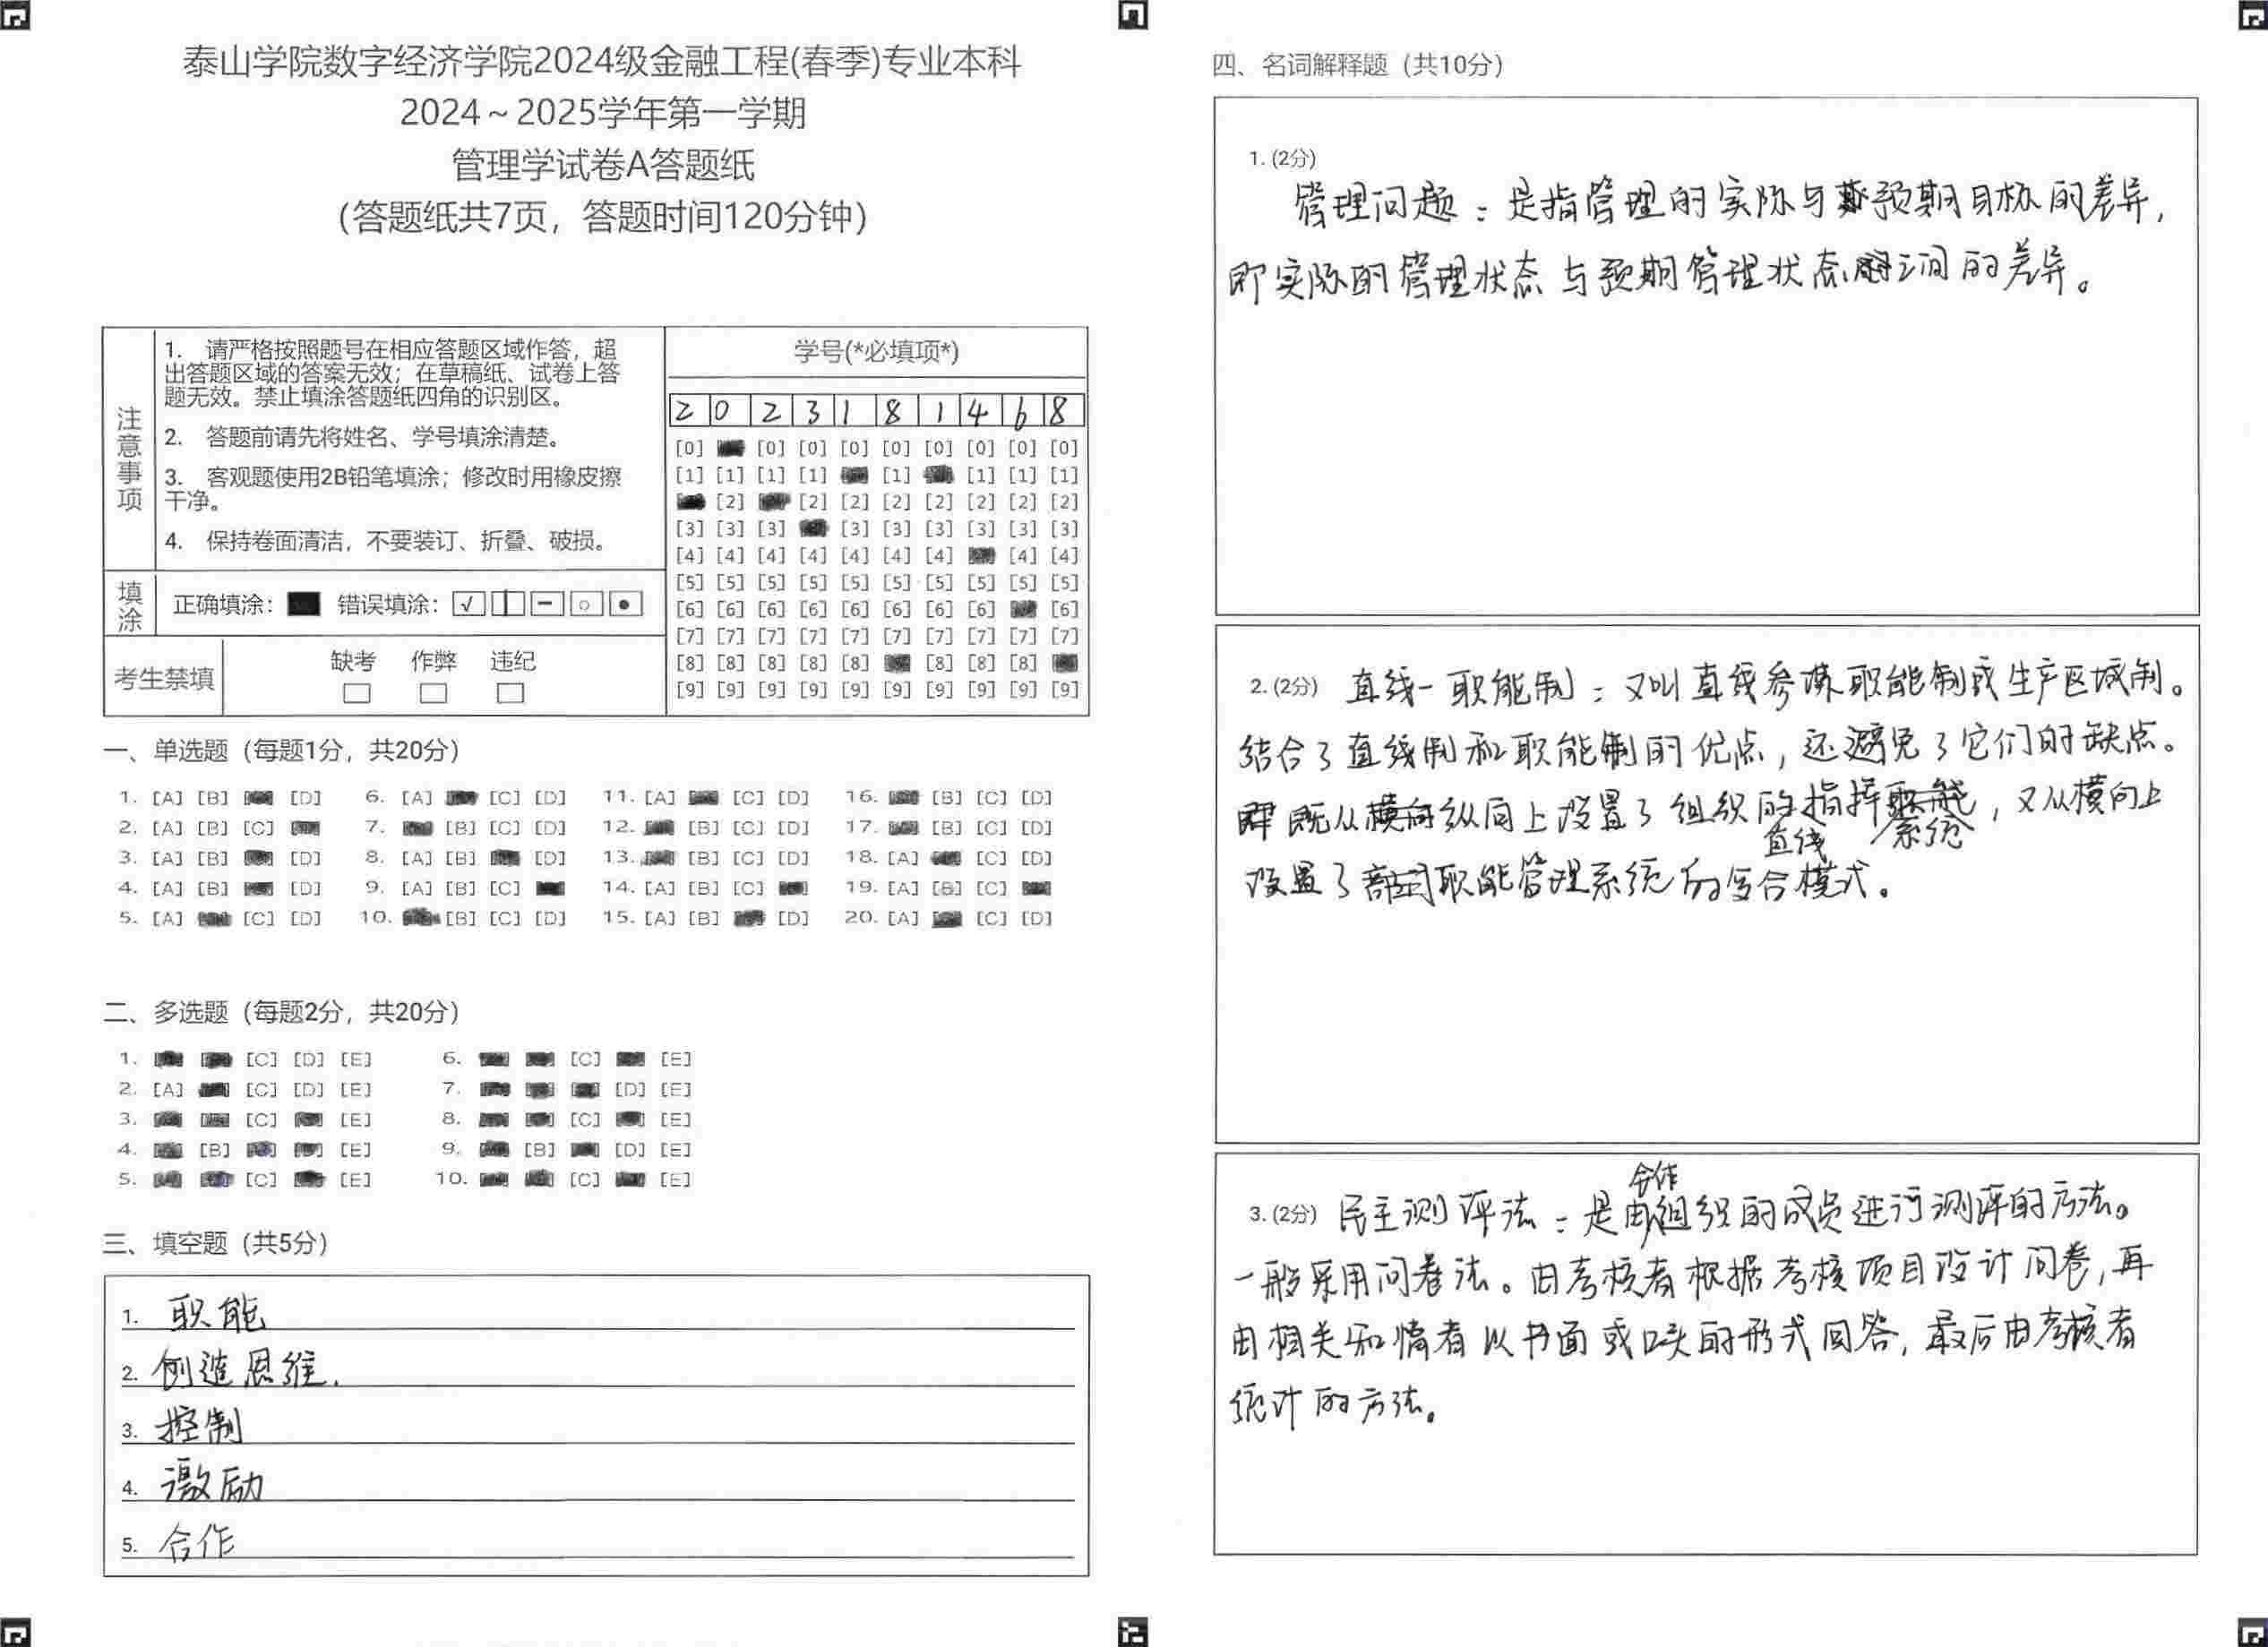 泰山学院数字经济学院2024级金融工程(春季)专业本科
2024～2025学年第一学期
管理学试卷A答题纸
（答题纸共7页，答题时间120分钟）
注意事项
1. 请严格按照题号在相应答题区域作答，超
出答题区域的答案无效；在草稿纸、试卷上答
题无效。禁止填涂答题纸四角的识别区。
2. 答题前请先将姓名、学号填涂清楚。
3. 客观题使用2B铅笔填涂；修改时用橡皮擦
干净。
4. 保持卷面清洁，不要装订、折叠、破损。
填涂 正确填涂： 错误填涂：
考生禁填 缺考 作弊 违纪
学号(*必填项*)
2 0 2 3 1 8 1 4 6 8
[0] [0] [0] [0] [0] [0] [0] [0] [0]
[1] [1] [1] [1] [1] [1] [1] [1]
[2] [2] [2] [2] [2] [2] [2] [2]
[3] [3] [3] [3] [3] [3] [3] [3] [3]
[4] [4] [4] [4] [4] [4] [4] [4] [4]
[5] [5] [5] [5] [5] [5] [5] [5] [5] [5]
[6] [6] [6] [6] [6] [6] [6] [6] [6]
[7] [7] [7] [7] [7] [7] [7] [7] [7] [7]
[8] [8] [8] [8] [8] [8] [8] [8]
[9] [9] [9] [9] [9] [9] [9] [9] [9] [9]
一、单选题（每题1分，共20分）
1. [A] [B] [D] 6. [A] [C] [D] 11. [A] [C] [D] 16. [B] [C] [D]
2. [A] [B] [C] 7. [B] [C] [D] 12. [B] [C] [D] 17. [B] [C] [D]
3. [A] [B] [D] 8. [A] [B] [D] 13. [B] [C] [D] 18. [A] [C] [D]
4. [A] [B] [D] 9. [A] [B] [C] 14. [A] [B] [C] 19. [A] [B] [C]
5. [A] [C] [D] 10. [B] [C] [D] 15. [A] [B] [D] 20. [A] [C] [D]
二、多选题（每题2分，共20分）
1. [C] [D] [E] 6. [C] [E]
2. [A] [C] [D] [E] 7. [D] [E]
3. [C] [E] 8. [C] [E]
4. [B] [E] 9. [B] [D] [E]
5. [C] [E] 10. [C] [E]
三、填空题（共5分）
1. 职能
2. 创造思维.
3. 控制
4. 激励
5. 合作
四、名词解释题（共10分）
1. (2分)
管理问题：是指管理的实际与预期目标的差异，
即实际的管理状态与预期管理状态之间的差异。
2. (2分) 直线一职能制：又叫直线参谋职能制或生产区域制。
结合了直线制和职能制的优点，还避免了它们的缺点。
既从纵向上设置了组织的直线指挥系统，又从横向上
设置了职能管理系统的复合模式。
3. (2分) 民主测评法：是由合作组织的成员进行测评的方法。
一般采用问卷法。由考核者根据考核项目设计问卷，再
由相关知情者以书面或口头的形式回答，最后由考核者
统计的方法。